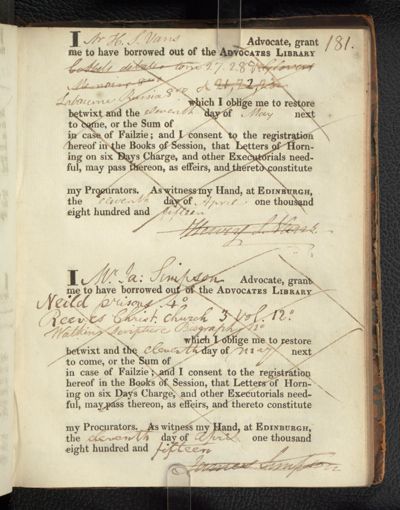 181.
I Mr H. I. Vans Advocate, grant
me to have borrowed out of the ADVOCATES LIBRARY
tom 27. 28
8vo 21, 22, 23
which I oblige me to restore
betwixt and the eleventh day of May next
to come, or the Sum of
in case of Failzie; and I consent to the registration
hereof in the Books of Session, that Letters of Horn-
ing on six Days Charge, and other Executorials need-
ful, may pass thereon, as effeirs, and thereto constitute
my Procurators. As witness my Hand, at EDINBURGH,
the eleventh day of April one thousand
eight hundred and fifteen
I Mr. Ja: Simpson Advocate, grant
me to have borrowed out of the ADVOCATES LIBRARY
Neild prisons. 4o
Reeves Christ. Church 3 Vol. 12o
Watkins Scripture Biography 12o
which I oblige me to restore
betwixt and the eleventh day of May next
to come, or the Sum of
in case of Failzie; and I consent to the registration
hereof in the Books of Session, that Letters of Horn-
ing on six Days Charge, and other Executorials need-
ful, may pass thereon, as effeirs, and thereto constitute
my Procurators. As witness my Hand, at EDINBURGH,
the eleventh day of April one thousand
eight hundred and fifteen
James Simpson